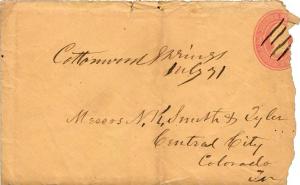 Cottonwood Springs
July 21
Messrs N. K. Smith & Tyler
Central City
Colorado
Ter